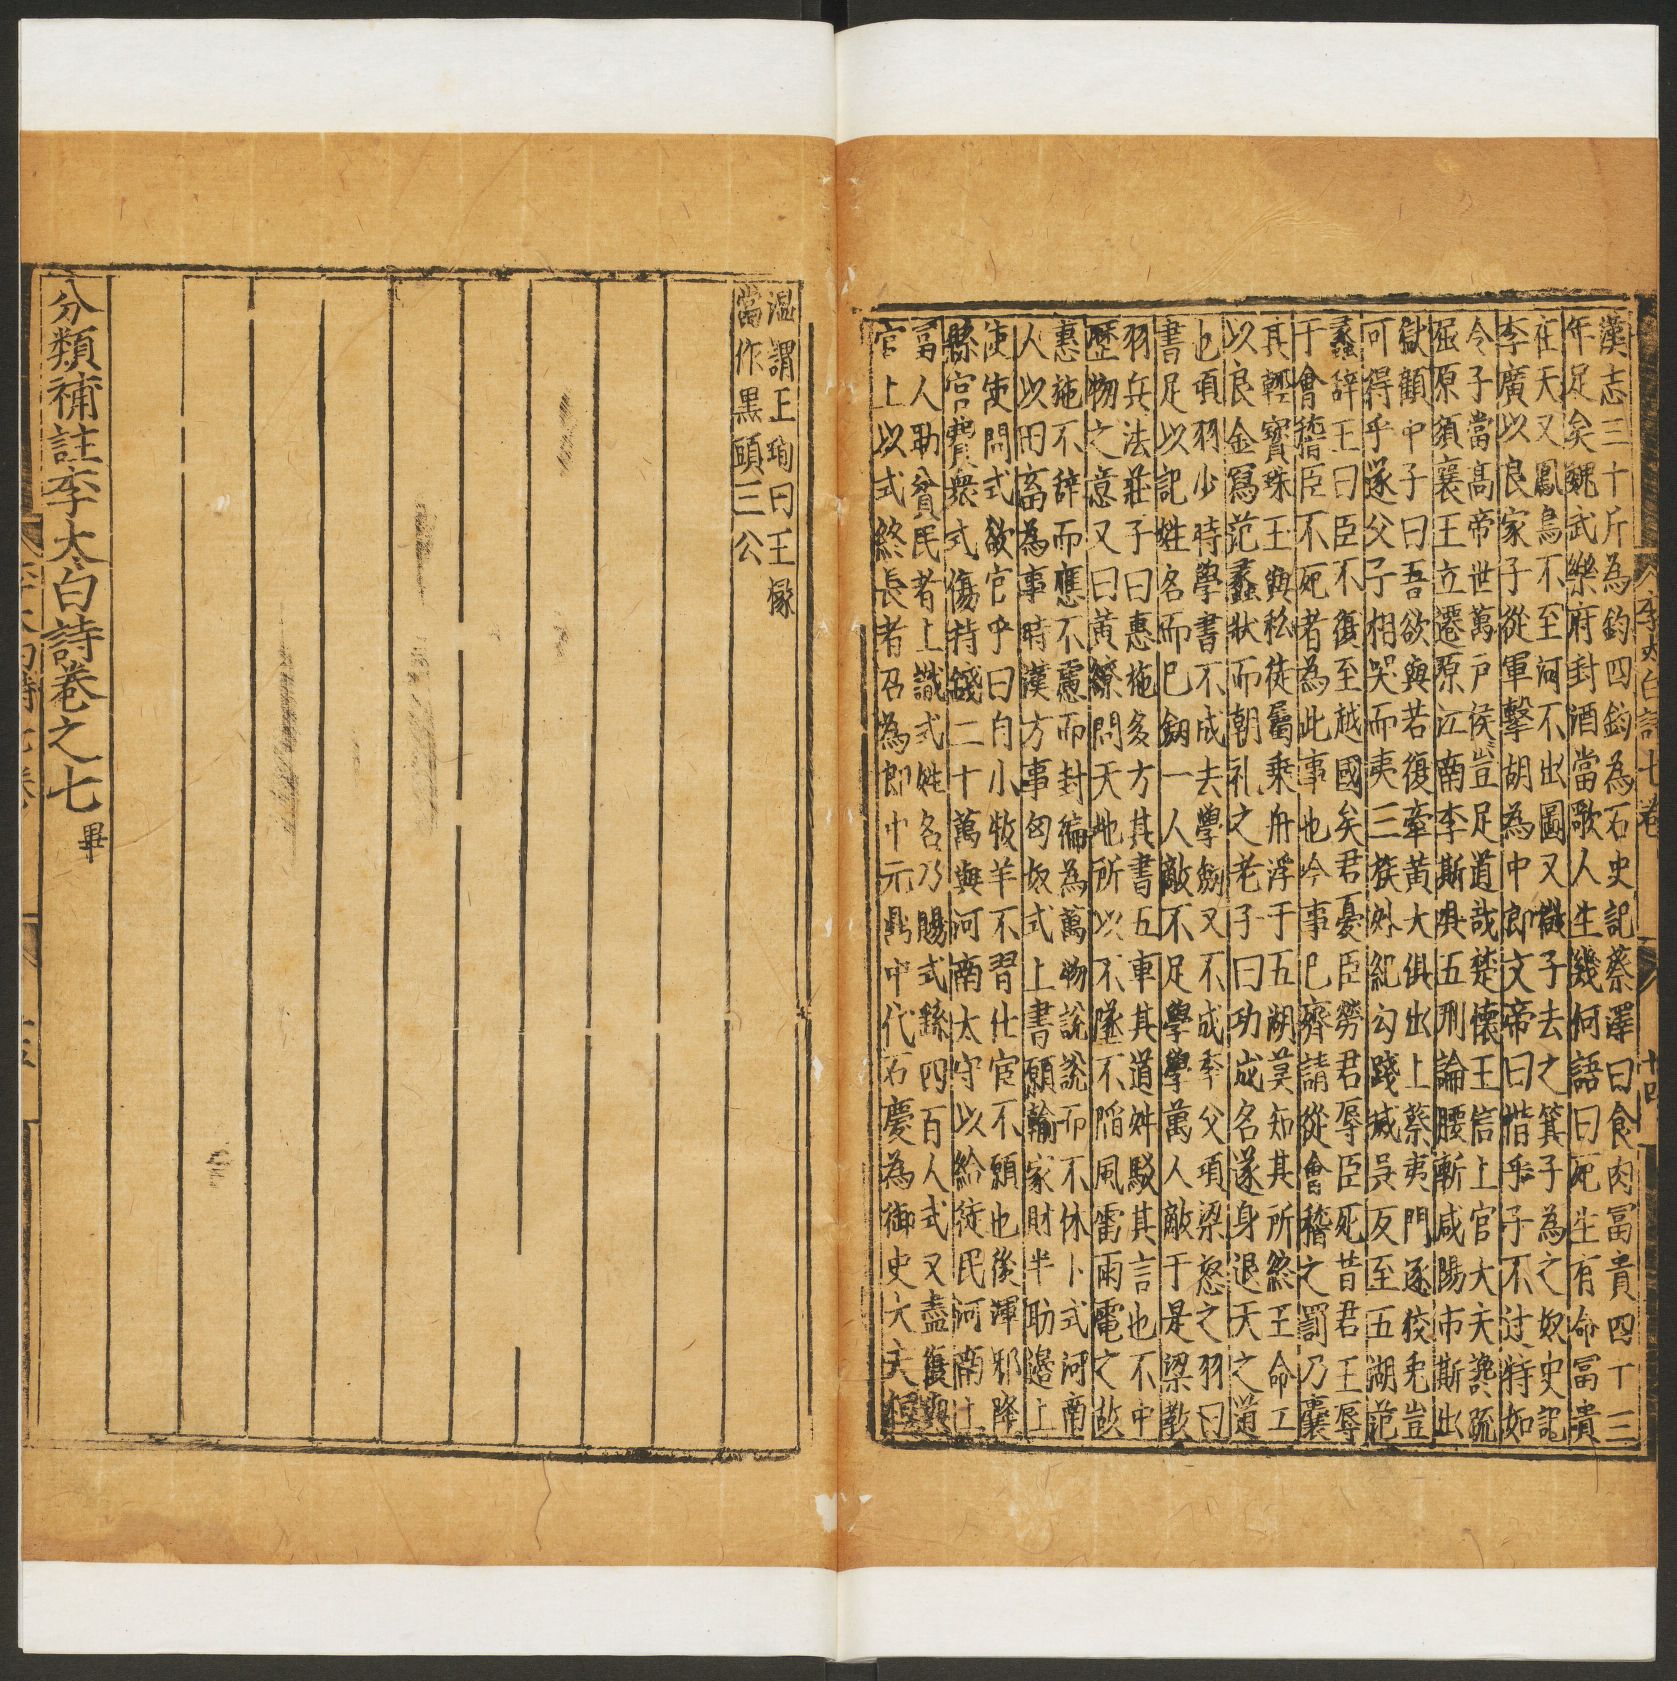 漢志三十斤為鈞四鈞為石史記蔡澤曰食肉富貴四十三
年足矣魏武樂府封酒當歌人生幾何語曰死生有命富貴
在天又鳳鳥不至河不出圖又微子去之箕子為之奴史記
李廣以良家子從軍擊胡為中郎文帝曰惜乎子不过特如
令子當髙帝世萬戸侯豈足道哉楚懷王信上官大夫䜛疏
屈原頃襄王立遷原江南李斯具五刑論腰斬咸陽市斯出
獄顧中子曰吾欲與若復牽黄犬俱出上蔡夷門逐狡兎豈
可得乎遂父子相哭而夷三族外紀勾踐㓕吳反至五湖范
蠡辞王曰臣不復至越國矣君憂臣勞君辱臣死昔君王辱
于會稽臣不死者為此事也今事已齊請從會稽之罰乃裏
其輕寳珠王與私徒屬乗舟浮于五湖莫知其所終王命工
以良金寫范蠡狀而朝礼之老子曰功成名遂身退天之道
也項羽少時學書不成去學劒又不成季父項梁怒之羽曰
書足以記姓名而巳劒一人敵不足學學萬人敵于是梁教
羽兵法莊子曰惠施多方其書五車其道舛駁其言也不中
歷物之意又曰黄繚問天地所以不墜不陷風雷雨電之故
惠施不辞而應不慮而封徧為萬物說說而不休卜式河南
人以田畜為事時漢方事匈奴式上書願輸家財半助邉上
使使問式欲官乎曰自小牧羊不習仕宦不願也後渾邪降
縣官費衆式傷持錢二十萬與河南太守以給徙民河南上
富人助貧民者上識式姓名乃賜式繇四百人式又盡復與
官上以式終長者召為郎中元鼎中代石慶為御史大夫桓
李太白詩七卷
十四
温謂王珣曰王掾
當作黑頭三公
分類補註李太白詩卷之七 畢